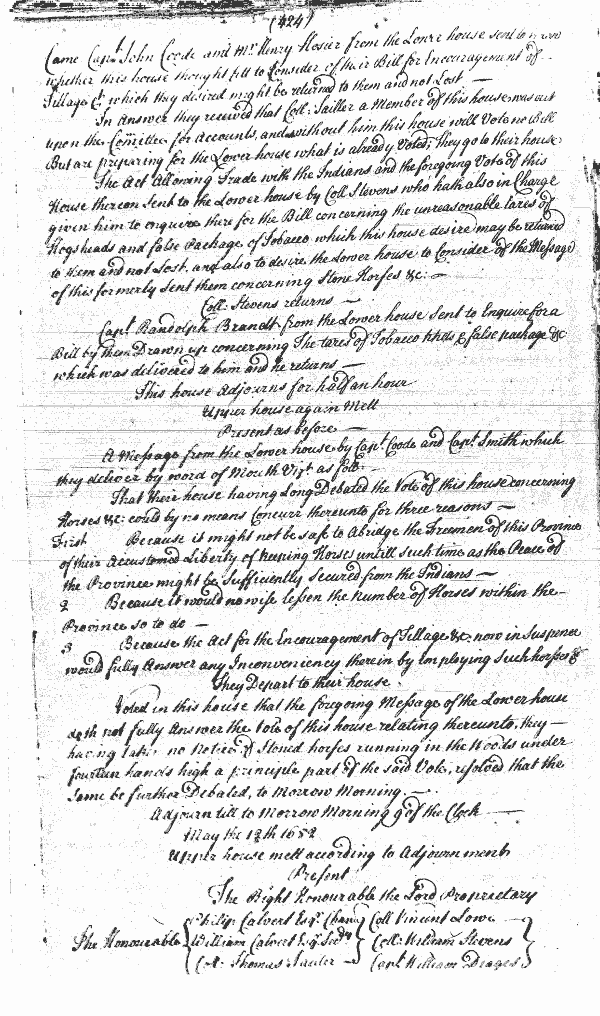 (424)
Came Capt. John Coode and Mr. Henry Hosier from the Lower house sent to know
whether this house thought fitt to Consider of their Bill for Encouragement of
Tillage &c. which they desired might be returned to them and not Lost —
In Answer they received that Coll: Tailler a Member of this house was out
upon the Comittee for Accounts, and without him this house will Vote no Bill
But are preparing for the Lower house what is already Voted; They go to their house
The Act Allowing Trade with the Indians and the foregoing Vote of this
House thereon sent to the Lower house by Coll Stevens who hath also in Charge
given him to enquire there for the Bill concerning the unreasonable tares of
Hogsheads and false Package of Tobacco which this house desire may be returned
to them and not Lost, and also to desire the Lower house to Consider of the Message
of this formerly sent them concerning Stone Horses &c: —
Coll: Stevens returns —
Capt. Randolph Brandt from the Lower house sent to Enquire for a
Bill by them Drawn up concerning The tares of Tobacco hhds & false package &c
which was delivered to him and he returns —
This house Adjourns for half an hour
Upper house again Mett
Present as before —
A Message from the Lower house by Capt. Coode and Capt. Smith which
they deliver by word of Mouth Vizt. as foll:
That their house having Long Debated the Vote of this house concerning
Horses &c: could by no means Concurr thereunto for three reasons —
First Because it might not be safe to Abridge the Freemen of this Province
of their Accustomed Liberty of keeping Horses untill such time as the Peace of
the Province might be sufficiently secured from the Indians —
2 Because it would no wise lessen the Number of Horses within the
Province so to do —
3 Because the Act for the Encouragement of Tillage &c. now in Suspence
would fully Answer any Inconveniency therein by Employing such horses &c
They Depart to their house
Voted in this house that the foregoing Message of the Lower house
doth not fully Answer the Vote of this house relating thereunto, they —
having taken no Notice of Stoned horses running in the Woods under
fourteen hands high a principle part of the said Vote, resolved that the
Same be further Debated, to Morrow Morning —
Adjourn till to Morrow Morning 9 of the Clock —
May the 12th 1682
Upper house mett according to Adjournment
Present
The Right Honourable the Lord Proprietary
The Honourable
Philip Calvert Esqr. Chanr. Coll Vincent Lowe
William Calvert Esqr. Secry Coll: William Stevens
Coll: Thomas Tailler Capt William Digges